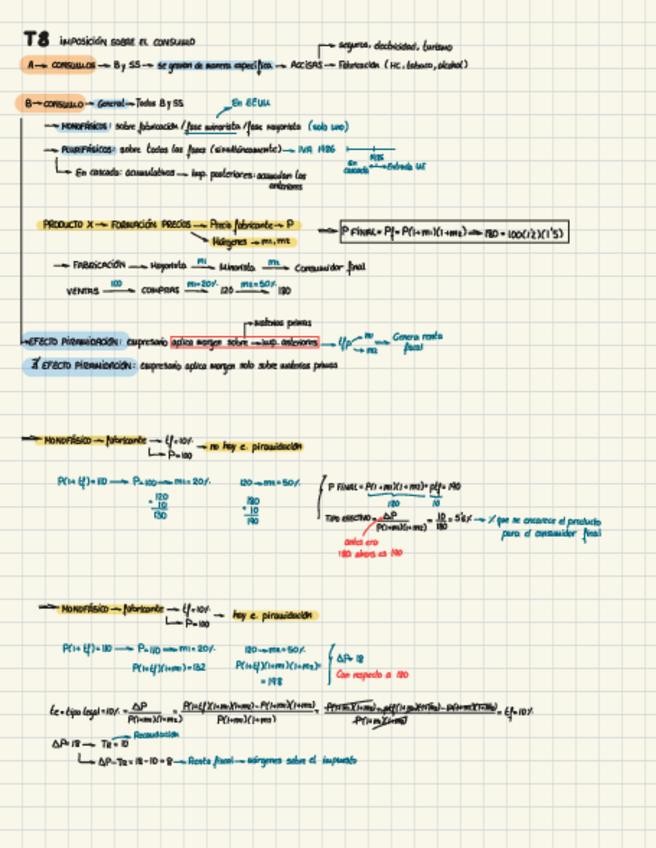 T8 IMPOSICIÓN SOBRE EL CONSUMO
→ seguros, electricidad, turismo
A → CONSUMOS → By SS → se gravan de manera específica → ACCISAS → Fabricación (HC, tabaco, alcohol)
B → CONSUMO → General → Todos By SS
→ En EEUU
→ MONOFÁSICOS: sobre fabricación/fase minorista/fase mayorista (solo uno)
→ PLURIFÁSICOS: sobre todas las fases (simultáneamente) → IVA 1986
1986
En cascada ← → Entrada UE
→ En cascada: acumulativos → imp. posteriores: acumulan los anteriores
PRODUCTO X → FORMACIÓN PRECIOS → Precio fabricante → P
→ Márgenes → m1, m2
→ P FINAL = Pf = P(1+m1)(1+m2) → 180 = 100(1'2)(1'5)
→ FABRICACIÓN → Mayorista m1 → Minorista m2 → Consumidor final
VENTAS 100 → COMPRAS m1=20% → 120 m2=50% → 180
→ Materias primas
→ EFECTO PIRAMIDACIÓN: empresario aplica margen sobre → imp. anteriores → t/p → m1 → m2 → Genera renta fiscal
∄ EFECTO PIRAMIDACIÓN: empresario aplica margen solo sobre materias primas
⇒ MONOFÁSICO → fabricante → tf=10% → no hay e. piramidación
→ P=100
P(1+tf)=110 → P=100 → m1=20%
120 → m2=50%
120
+10
130
180
+10
190
P FINAL = P(1+m1)(1+m2)+ptf = 190
180 10
TIPO EFECTIVO = ΔP / P(1+m1)(1+m2) = 10/180 = 5'5% → % que se encarece el producto para el consumidor final
antes era
180 ahora es 190
⇒ MONOFÁSICO → fabricante → tf=10% → hay e. piramidación
→ P=100
P(1+tf)=110 → P=110 → m1=20%
120 → m2=50%
P(1+tf)(1+m1)=132
P(1+tf)(1+m1)(1+m2)=
=198
ΔP= 18
Con respecto a 180
te = tipo legal = 10% = ΔP / P(1+m1)(1+m2) = P(1+tf)(1+m1)(1+m2)-P(1+m1)(1+m2) / P(1+m1)(1+m2) = P(1+m1)(1+m2)+ptf(1+m1)(1+m2)-P(1+m1)(1+m2) / P(1+m1)(1+m2) = tf=10%
→ Recaudación
ΔP= 18 → TR = 10
→ ΔP-TR = 18-10 = 8 → Renta fiscal → márgenes sobre el impuesto